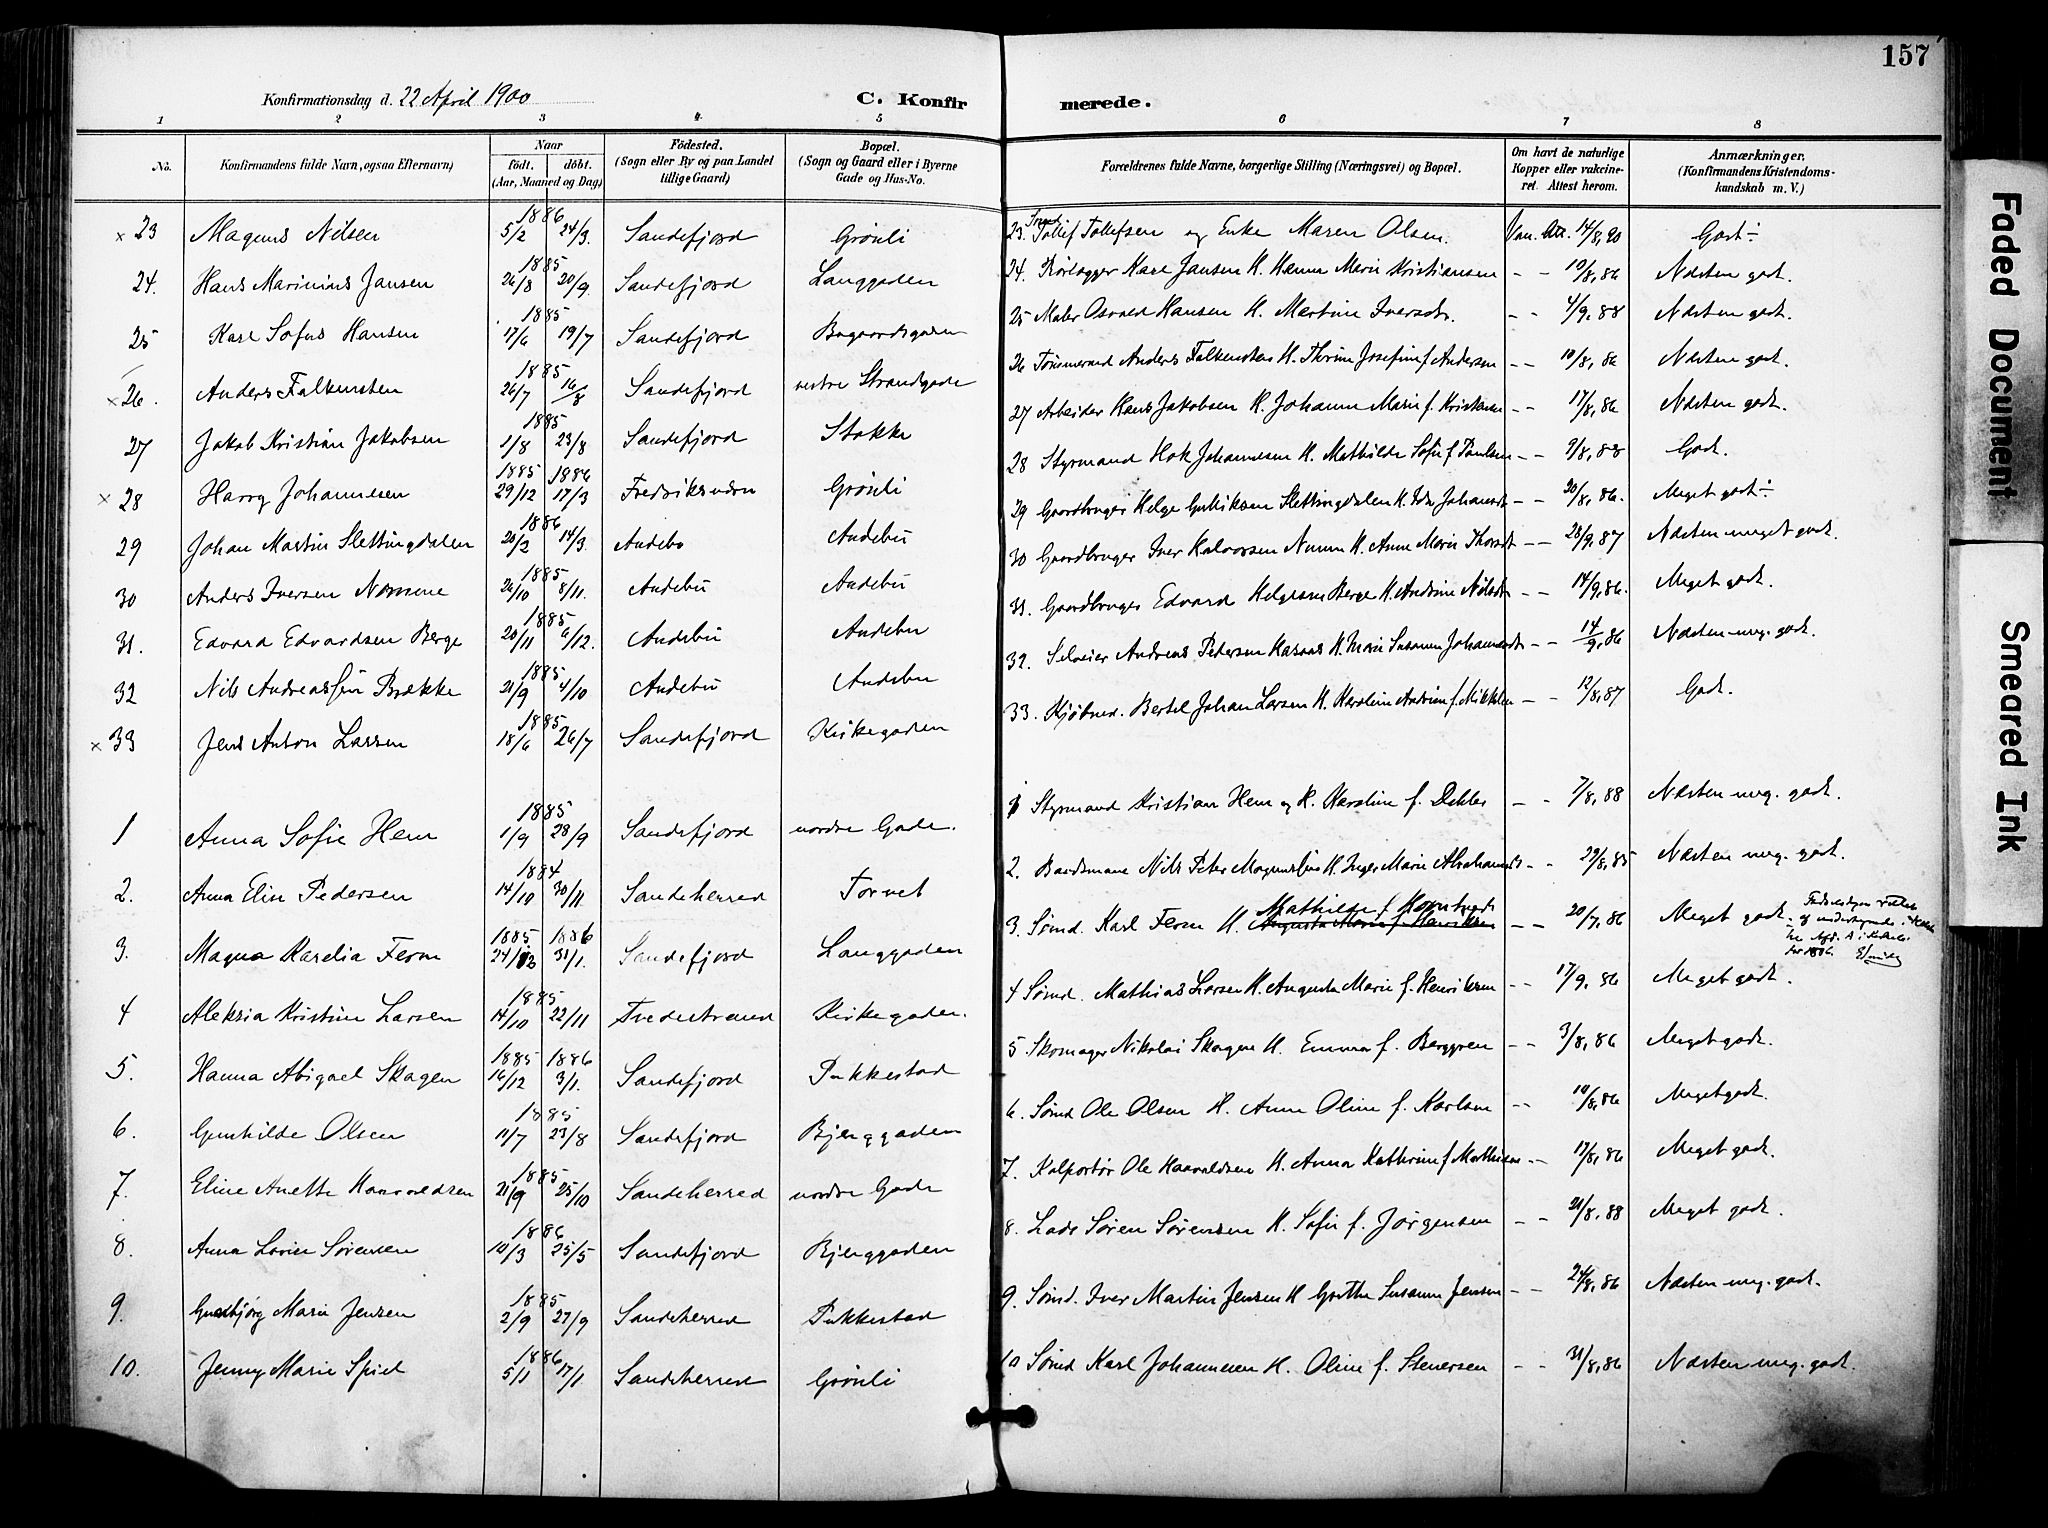 157
Konfirmationsdag d. 22 April 1900
C. Konfirmerede.
1 2 3 4 5 6 7 8
No. Konfirmandens fulde Navn, ogsaa Efternavn) Naar født. døbt. (Aar, Maaned og Dag) Fødested. (Sogn eller By og paa Landet tillige Gaard) Bopæl. (Sogn og Gaard eller i Byerne Gade og Hus-No. Forældrenes fulde Navne, borgerlige Stilling (Næringsvei) og Bopæl. Om havt de naturlige Kopper eller vakcineret. Attest herom. Anmærkninger. (Konfirmandens Kristendomskundskab m. V.)
x 23 Magnus Nilsen 1886 5/2 24/3. Sandefjord Grønli 23. Tollef Tollefsen og Enke Maren Olsen. Vac. Att. 14/8, 90 Godt ÷
24. Hans Marinius Jansen 1885 26/8 20/9. Sandefjord Langgaden 24. Karl Jansen H. Hanna Marie Kristiansen - - 10/8, 86 Næsten godt.
25 Karl Sofus Hansen 1885 17/6 19/7 Sandefjord Bogaardsgaden 25 Maler Osvald Hansen H. Martine Iversdtr. - - 4/9, 88 Næsten godt.
x 26. Anders Falkensten 1885 26/7 16/8 Sandefjord vestre Strandgade 26 Tømmermd Anders Falkensten H. Thrine Josefine f. Andersen - - 10/8, 86 Næsten godt.
27 Jakob Kristian Jakobsen 1885 1/8 23/8 Sandefjord Stokke 27 Arbeider Hans Jakobsen H. Johanne Marie f. Kristensen - - 17/8, 86 Næsten godt.
x 28 Harry Johannesen 1885 29/12 1886 17/3 Fredriksværn Grønli 28 Styrmand Johannesen H. Mathilde Sofie f. Paulsen - - 9/8, 88 Godt.
29 Johan Martin Slettingdalen 1886 20/2 14/3. Andebo Andebu 29 Gaardbruger Helge Gulliksen Slettingdalen H. Johansdt - - 20/8, 86. Meget godt ÷
30 Anders Iversen Nomme 1885 26/10 8/11. Andebu Andebu 30 Gaardbruger Iver Halvorsen H. Anne Marie Thorsdt - - 28/9, 87 Næsten meget godt.
31. Edvard Edvardsen Berge 1885 20/11 6/12. Andebu Andebu 31. Gaardbruger Edvard Helgesen Berge H. Andrine Nilsdt - - 14/9, 86. Meget godt.
32 Nils Andreassen Brække 1885 21/9 4/10 Andebu Andebu 32. Selveier Andreas Pedersen H. Marie Susanne Johannesdt - - 14/9, 86 Næsten meg. godt.
x 33 Jens Anton Larsen 1885 18/6 26/7 Sandefjord Kirkegaden 33. Kjøbmd. Bertel Johan Larsen H. Karoline Andrine f. Mikkelsen - 12/8, 87 Godt.
1 Anna Sofie Hem 1885 1/9 28/9 Sandefjord nordre Gade. 1 Styrmand Kristian Hem og H. Karoline f. Dehler - - 7/8, 88 Næsten meg. godt.
2. Anna Elise Pedersen 1884 14/10 30/11. Sandeherred Torvet 2. Baadsmand Nils Peter H. Inger Marie Abrahamsdt - - 29/8, 85 Næsten meg. godt.
3. Magna Karelia Ferm 1885 24/12 1886 31/1. Sandefjord Langgaden 3. Sømd. Karl Ferm H. Augusta Marie f. Henriksen Mathilde f. - - 20/7, 86 Meget godt.
4 Aleksia Kristine Larsen 1885 14/10 22/11 Tvedestrand Kirkegaden. 4 Sømd. Mathias Larsen H. Augusta Marie f. Henriksen - - 17/9, 86 Meget godt.
5. Hanna Abigael Skagen 1885 16/12 1886 3/1. Sandefjord Pukkestad 5 Skomager Nikolai Skagen H. Emma f. Berggren - - 3/8, 86 Meget godt.
6. Gunhilde Olsen 1885 11/7 23/8 Sandefjord Bjerggaden 6. Sømd Ole Olsen H. Anne Oline f. Karlsen - - 10/8, 86 Meget godt.
7. Eline Anette Haavaldsen 1885 21/9 25/10 Sandeherred nordre Gade 7. Kolportør Ole Haavaldsen H. Anna Kathrine f. Mathisen - - 17/8, 86 Meget godt.
8. Anna Lovise Sørensen 1886 10/3 25/5 Sandefjord Bjerggaden 8. Lods Søren Sørensen H. Sofie f. Jørgensen - - 21/8, 88 Meget godt.
9. Gunbjørg Marie Jensen 1885 2/9 27/9 Sandeherred Pukkestad 9. Sømd. Iver Martin Jensen H Grethe Susanne Jensen - - 24/8, 86 Næsten meg. godt.
10. Jenny Marie Spiel 1886 5/1 17/1. Sandeherred Grønli 10 Sømd Karl Johannesen H. Oline f. Stenersen - - 31/8, 86 Næsten meg. godt.
Faded Document
Smeared Ink